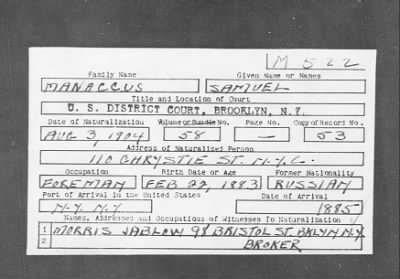 M 522
Family Name Given Name or Names
MANACCUS SAMUEL
Title and Location of Court
U. S. DISTRICT COURT, BROOKLYN, N.Y.
Date of Naturalization Volume or Bundle No. Page No. Copy of Record No.
AUG 3, 1904 58 — 53
Address of Naturalized Person
110 CHRYSTIE ST. N.Y.C.
Occupation Birth Date or Age Former Nationality
FOREMAN FEB 22, 1883 RUSSIAN
Port of Arrival in the United States Date of Arrival
N.Y. N.Y. 1885
Names, Addresses and Occupations of Witnesses To Naturalization
1 MORRIS JABLOW 98 BRISTOL ST. BKLYN N.Y.
2 BROKER